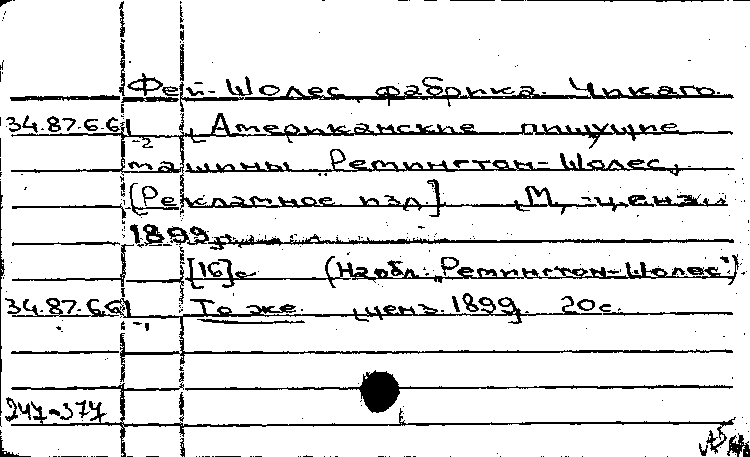 Фей-Шолес, фабрика. Чикаго.
34.87.6.61 Американские пишущие
-2
машины „Ремингтон-Шолес„
[Рекламное изд.] М, ценз.
1899,
[16]с (На обл: „Ремингтон-Шолес")
34.87.6.61 То же. ценз. 1899. 20с.
-1
247-377